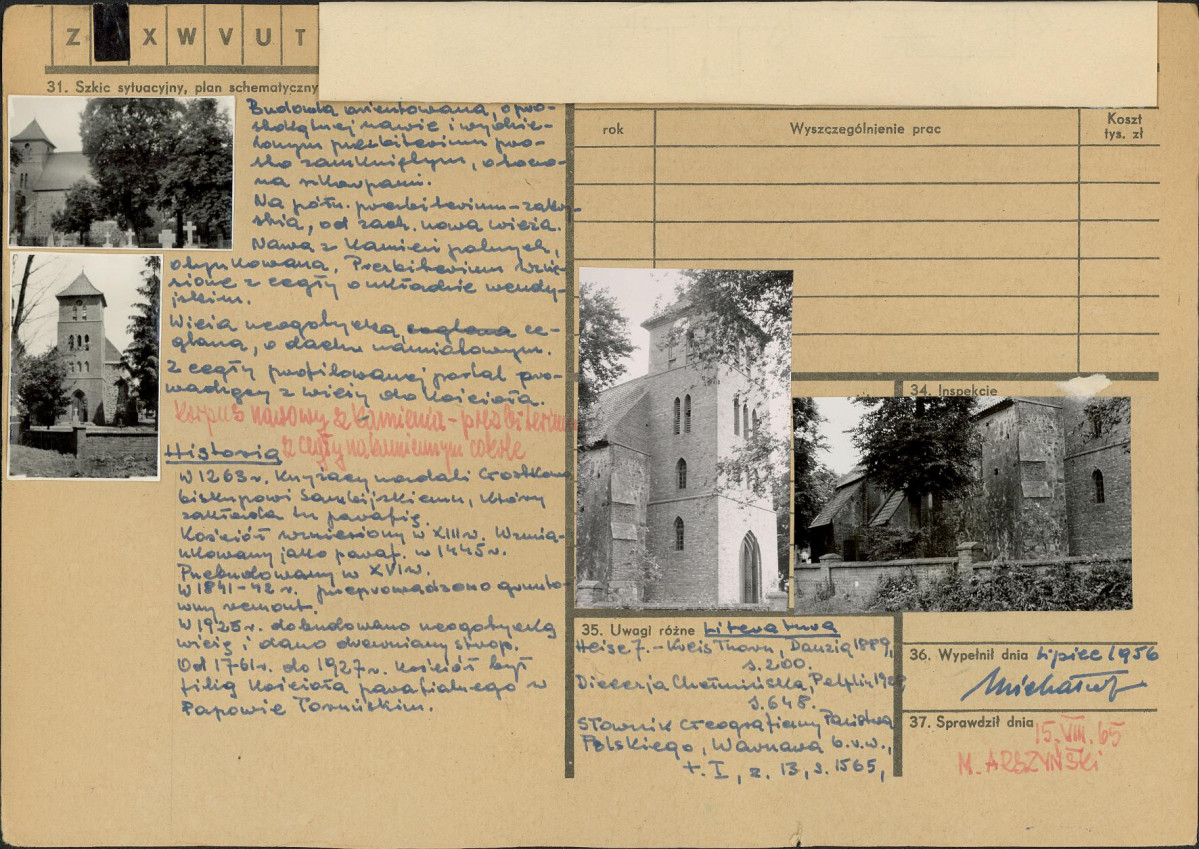 Z X W V U T
31. Szkic sytuacyjny, plan schematyczny
Budowla orientowana, o pro-
stokątnej nawie i wydzie-
lonym prezbiterium pro-
sto zamkniętym, otoczo-
na szkarpami.
Na półn. prezbiterium - zakry-
stia, od zach. nowa wieża.
Nawa z kamieni polnych,
otynkowana. Prezbiterium wznie-
sione z cegły o układzie wendy-
jskim.
Wieża neogotycka ceglana ce-
glana, o dachu namiotowym.
Z cegły profilowanej portal pro-
wadzący z wieży do kościoła.
Korpus nawowy z kamienia - prezbiterium
z cegły na kamiennym cokole
Historia
W 1263 r. Krzyżacy nadali Grostkowo
biskupowi Sambijskiemu, który
zakłada tu parafię.
Kościół wzniesiony w XIII w. Wzmia-
nkowany jako paraf. w 1445 r.
Przebudowany w XVI w.
W 1841-42 r. przeprowadzono grunto-
wny remont.
W 1925 r. dobudowano neogotycką
wieżę i dano drewniany strop.
Od 1761 r. do 1927 r. kościół był
filią kościoła parafialnego w
Papowie Toruńskim.
rok Wyszczególnienie prac Koszt
tys. zł
34. Inspekcje
35. Uwagi różne Literatura
Heise J. - Kreis Thorn, Danzig 1889,
s. 200.
Diecezja Chełmińska, Pelplin 1928
s. 648.
Słownik Geograficzny Państwa
Polskiego, Warszawa b.r.w.,
t. I, z. 13, s. 1565,
36. Wypełnił dnia Lipiec 1956
37. Sprawdził dnia 15. VIII. 65
M. ARSZYŃSKI